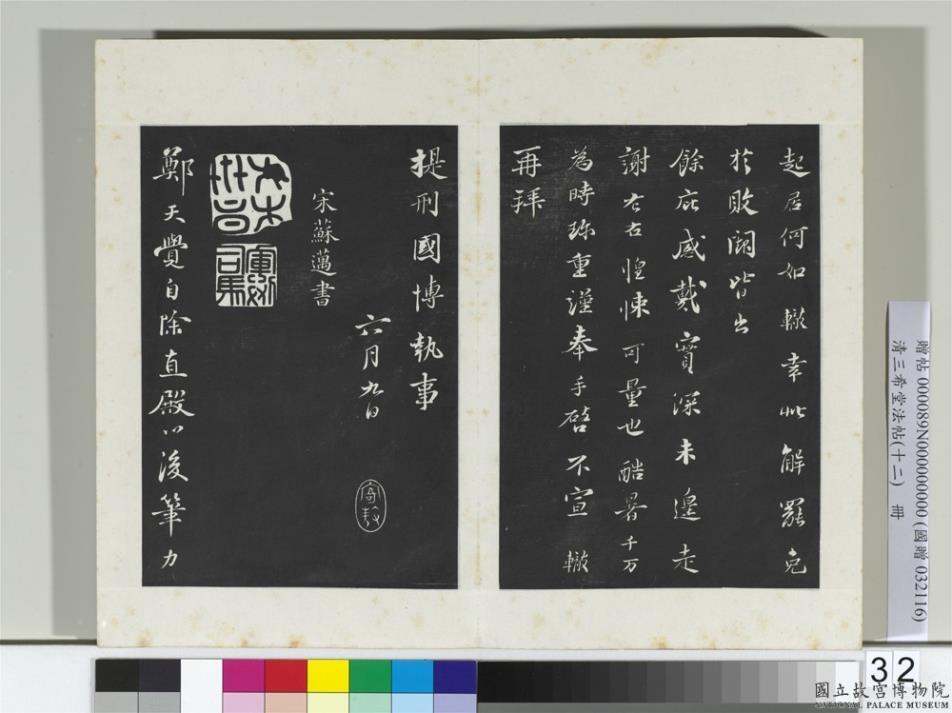 起居何如轍幸此解罷免
於敗闕皆出
餘庇感戴實深未遑走
謝左右惶悚可量也酷暑千万
為時珎重謹奉手啓不宣 轍
再拜
提刑國博執事
六月九日
宋蘇邁書
鄭天覺自除直殿以後筆力
贈帖 000089N000000000 (國贈 032116)
清三希堂法帖(十二) 冊
32
國立故宮博物院
NATIONAL PALACE MUSEUM